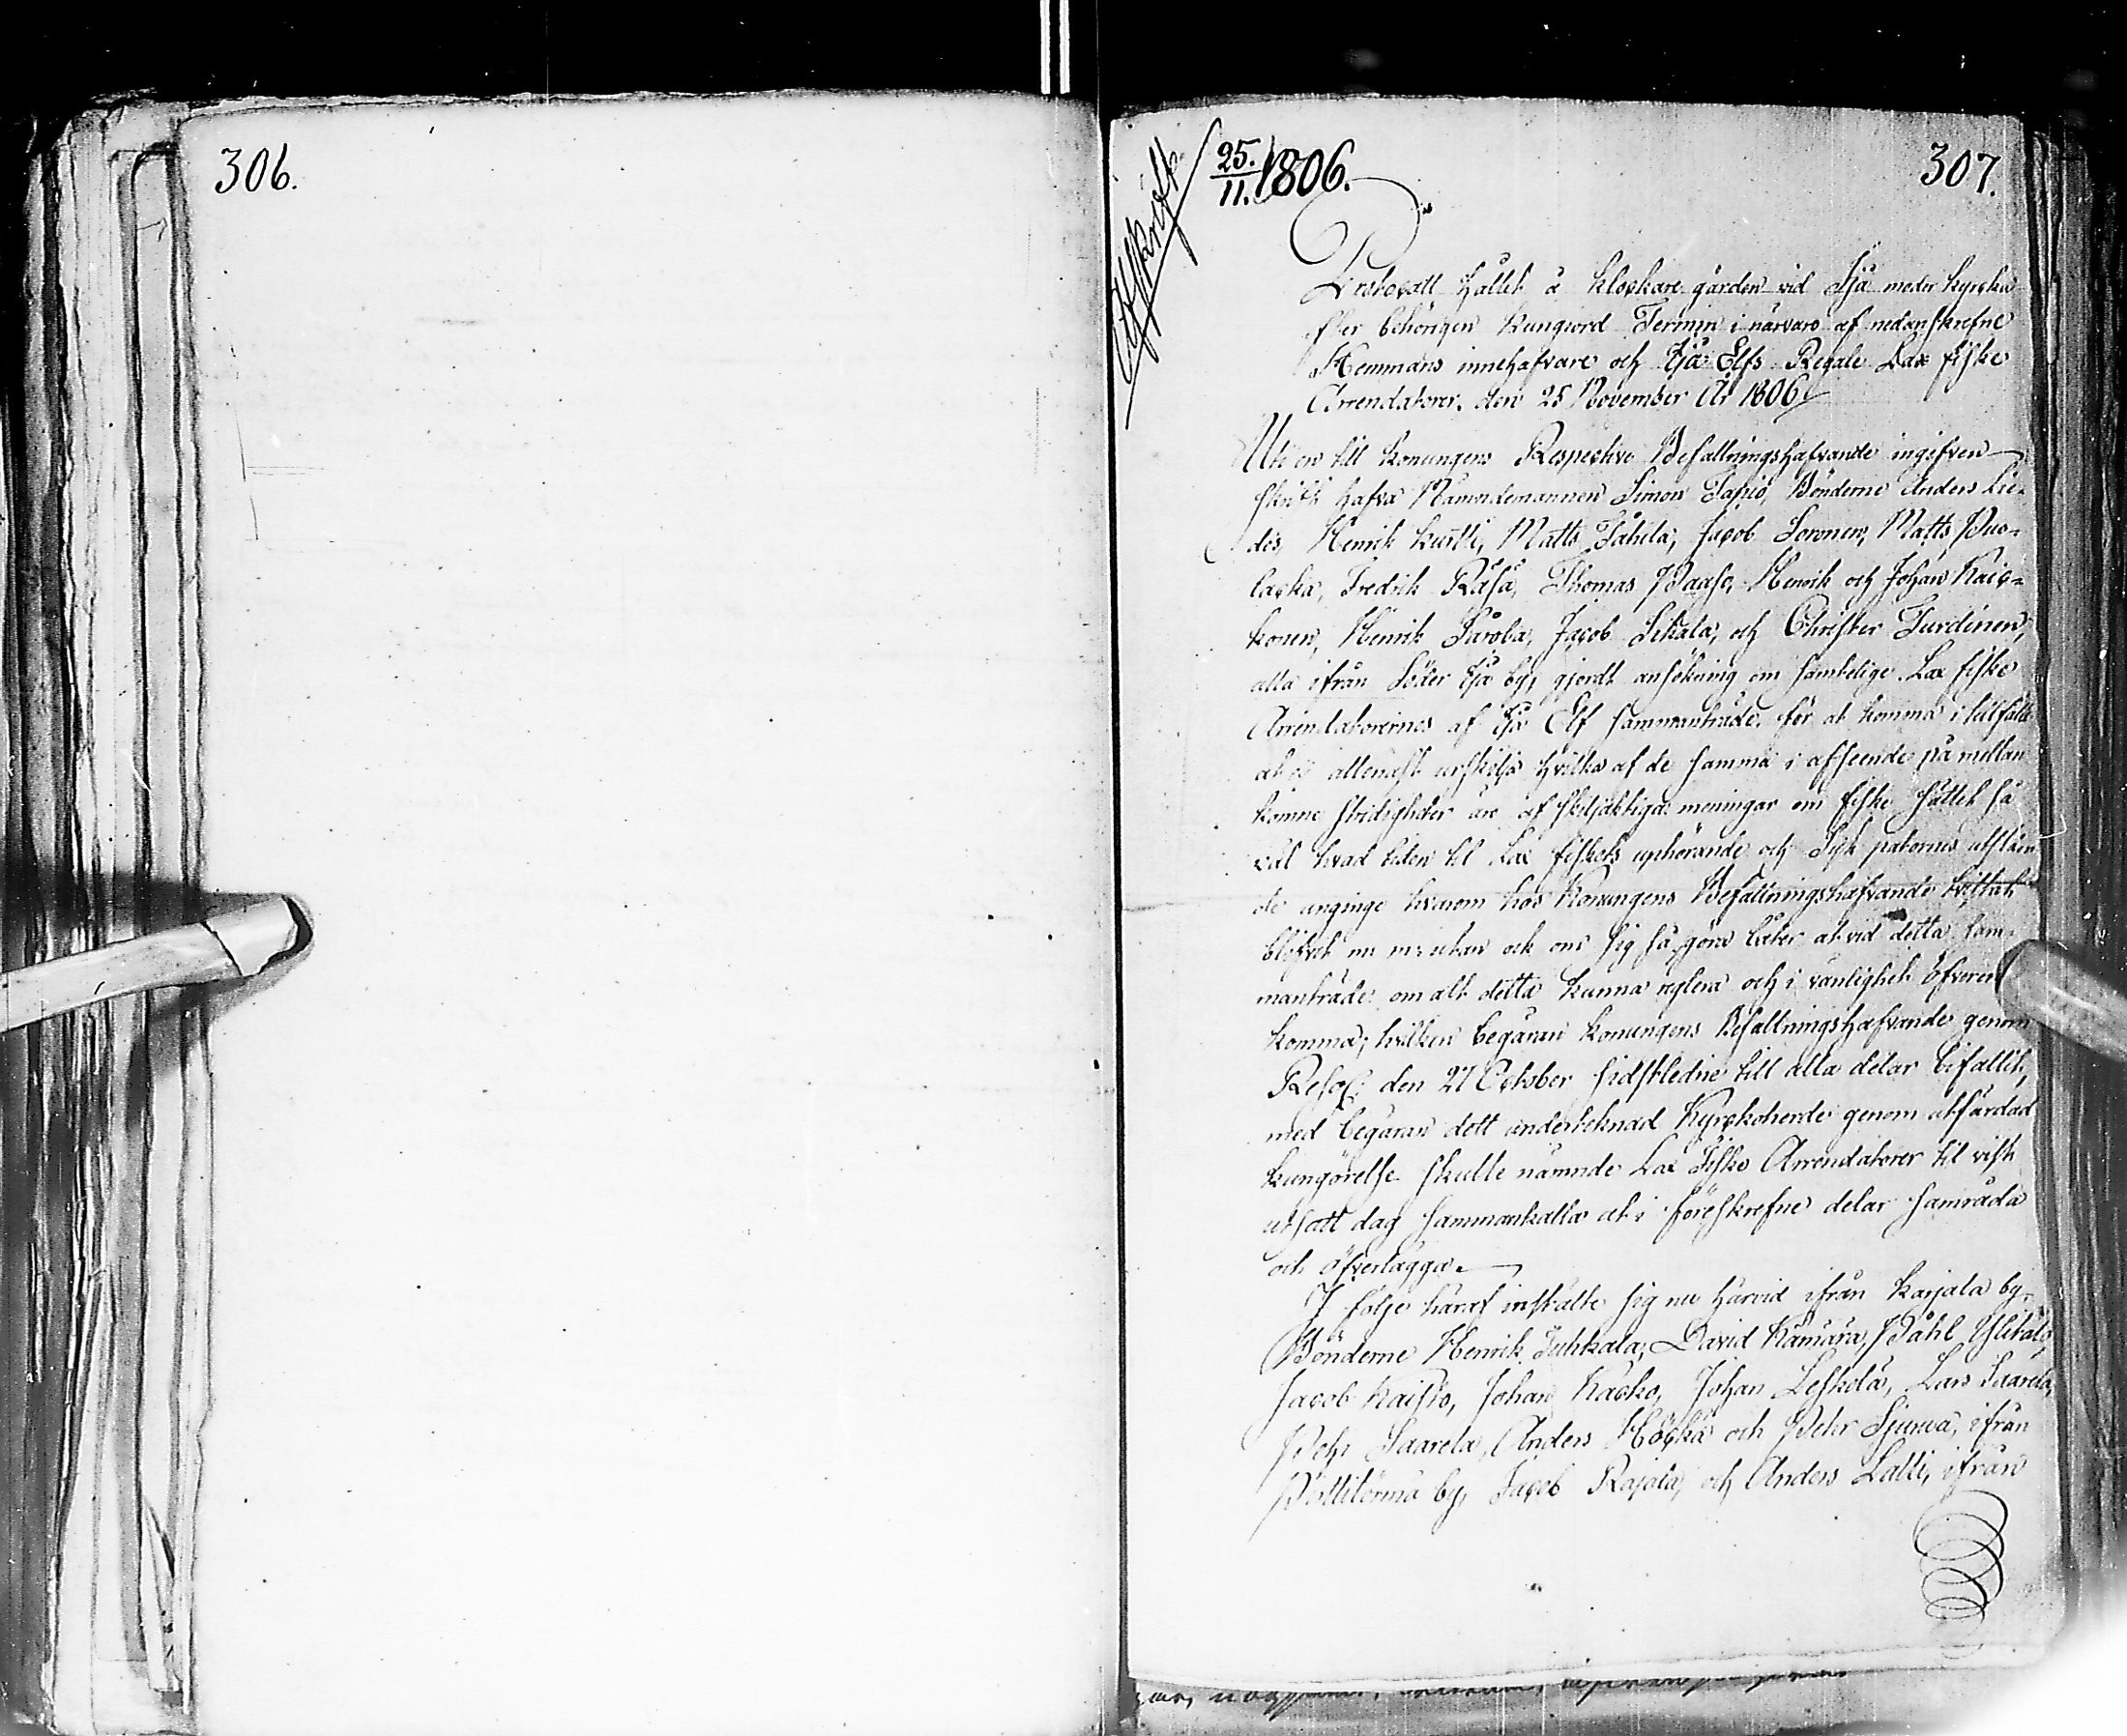 306.
Afskrift
25./11. 1806.
307.
Protocoll hållet å klockare gården vid Ijå moder kyrka
efter behörigen kungjord Termin i närvaro af nedanskrefne
Hemmans innehafvare och Ijå Elfs Regale Lax fiske
Arrendatorer. den 25 November År 1806
Uti en till Konungens Respective Befallningshafvande ingifven
skrift hafva Nämndemannen Simon Tapio, Bönderne Anders Lie-
des, Henrik Kurtti, Matts Tähtelä, Jacob Soronen, Matts Puo-
lacka, Fredrik Räsä, Thomas Paaso, Henrik och Johan Kaic-
konen, Henrik Jacob Sikala, och Christer Turdinen,
alla ifrån Söder Ijå by, gjordt ansökning om samtelige Lax fiske
Arrendatorernes af Ijå Elf sammanträde. för at komma i tillfälle
at ej allenast urskilja hvilka af de samma i afseende på mellan
komne stridigheter äro af skiljaktiga meningar om fiske sättet så
väl hvad tiden til Lax fiskets uphörande och Sik patornes utstäen
de anginge hvarom hos Konungens Befallningshafvande tvistat
blifvit m: m: utan och om sig så göra låter at vid detta sam-
manträde om alt detta kunna reglera och i vänlighet öfverens
komma; hvilken begäran Konungens Befallningshafvande genom
Resol: den 27 October sidstledne till alla delar bifallit,
med begäran dett undertecknad Kyrckoherde genom utfärdad
kungörelse skulle nämnde Lax Fiske Arrendatorer til visst
utsatt dag sammankalla at i föreskrefne delar samråda
och öfverlägga.
I följe häraf instälte sig nu härvid ifrån Karjala by,
Bönderne Henrik Juhkala, David Kämärä, Påhl Ylitalo,
Jacob Kaisto, Johan Kacko, Johan Leskelä, Lars Saarela,
Pehr Saarela, Anders Höckä och Petter Sjurva, ifrån
by, Jacob Rajala, och Anders Lalli, ifrån